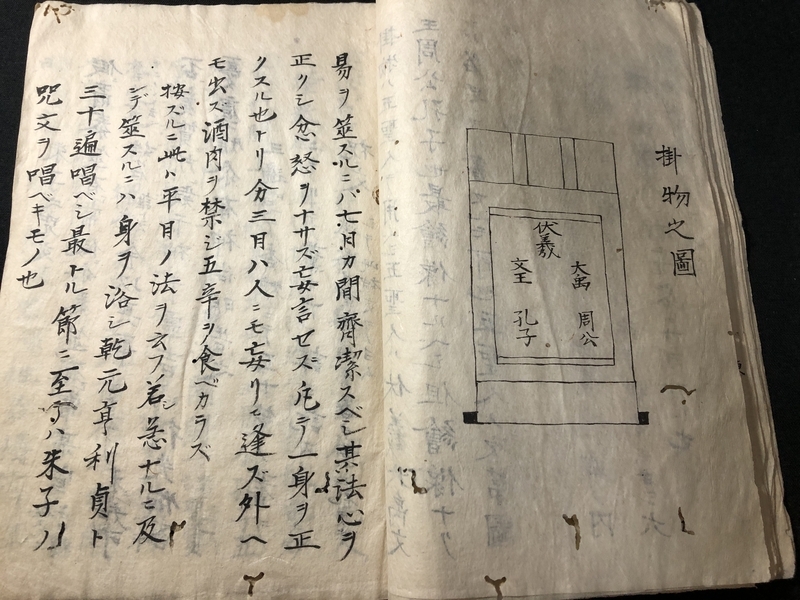 掛物之圖
伏羲
大禹
文王
周公
孔子
易ヲ筮スルニハ七日カ間齊潔スベシ其法心ヲ
正クシ忿怒ヲナサズ妄言セズ 一身ヲ正
クスル也トリ分三日ハ人ニモ妄リニ逢ズ外ヘ
モ出ズ酒肉ヲ禁ジ五辛ヲ食ベカラズ
按ズルニ此ハ平日ノ法ヲ云フ若シ急ナルニ及
ンデ筮スルニハ身ヲ浴シ乾元亨利貞ト
三十遍唱ベシ最トル節ニ至テハ朱子ノ
咒文ヲ唱ベキモノ也